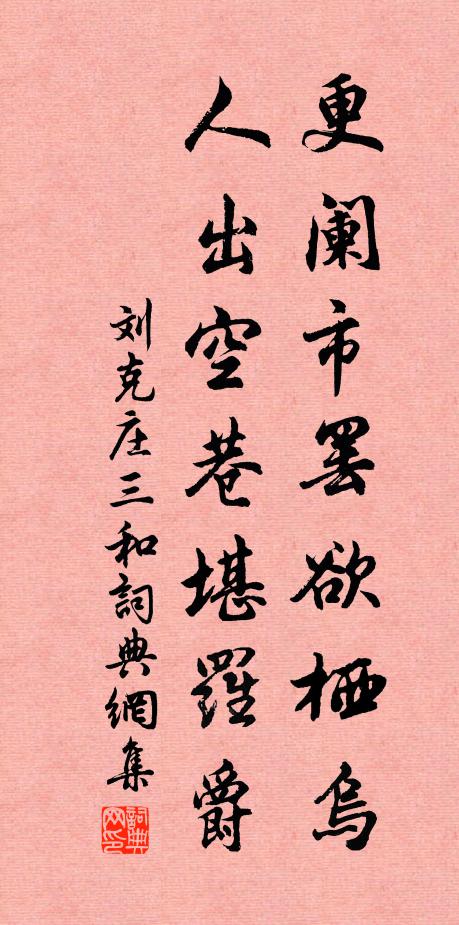 更阑市罢欲栖乌
人出空巷堪羅爵
刘克庄三和詞典網集
詞典网印